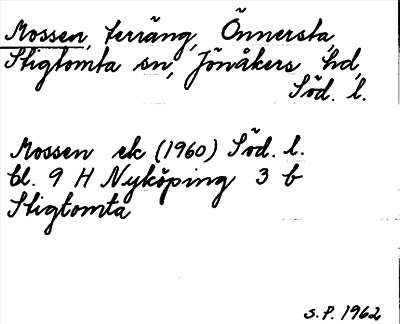 Mossen, terräng, Önnersta,
Stigtomta sn, Jönåkers hd,
Söd. l.
Mossen ek (1960) Söd. l.
bl. 9 H Nyköping 3 b
Stigtomta
S.P. 1962